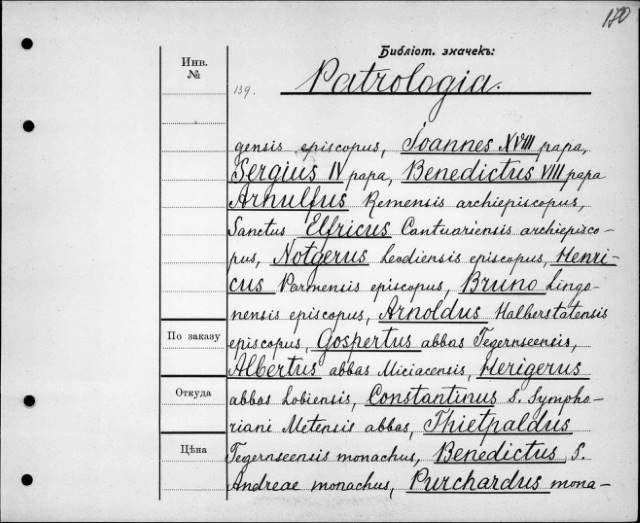 180
Библіот. значекъ:
Инв.
№
139.
Patrologia.
gensis episcopus, Joannes XVIII papa,
Sergius IV papa, Benedictus VIII papa
Arnulfus Remensis archiepiscopus,
Sanctus Elfricus Cantuariensis archiepisco-
pus, Notgerus Leodiensis episcopus, Henri-
cus Parmensis episcopus, Bruno Lingo-
nensis episcopus, Arnoldus Halberstatensis
По заказу
episcopus, Gospertus abbas Tegernseensis,
Albertus abbas Miciacensis, Herigerus
Откуда
abbas Lobiensis, Constantinus S. Sympho-
riani Metensis abbas, Thietpaldus
Цѣна
Tegernseensis monachus, Benedictus S.
Andreae monachus, Purchardus mona-